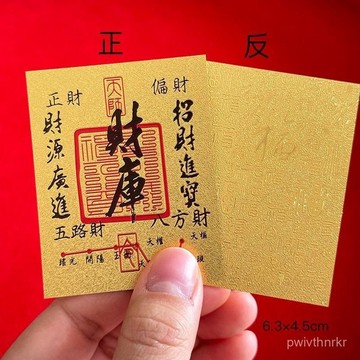 正
反
天師
正財
偏財
財源廣進
財庫
招財進寶
五路財
八方財
瑤光
開陽
玉
天權
天樞
6.3×4.5cm
pwivthnrkr